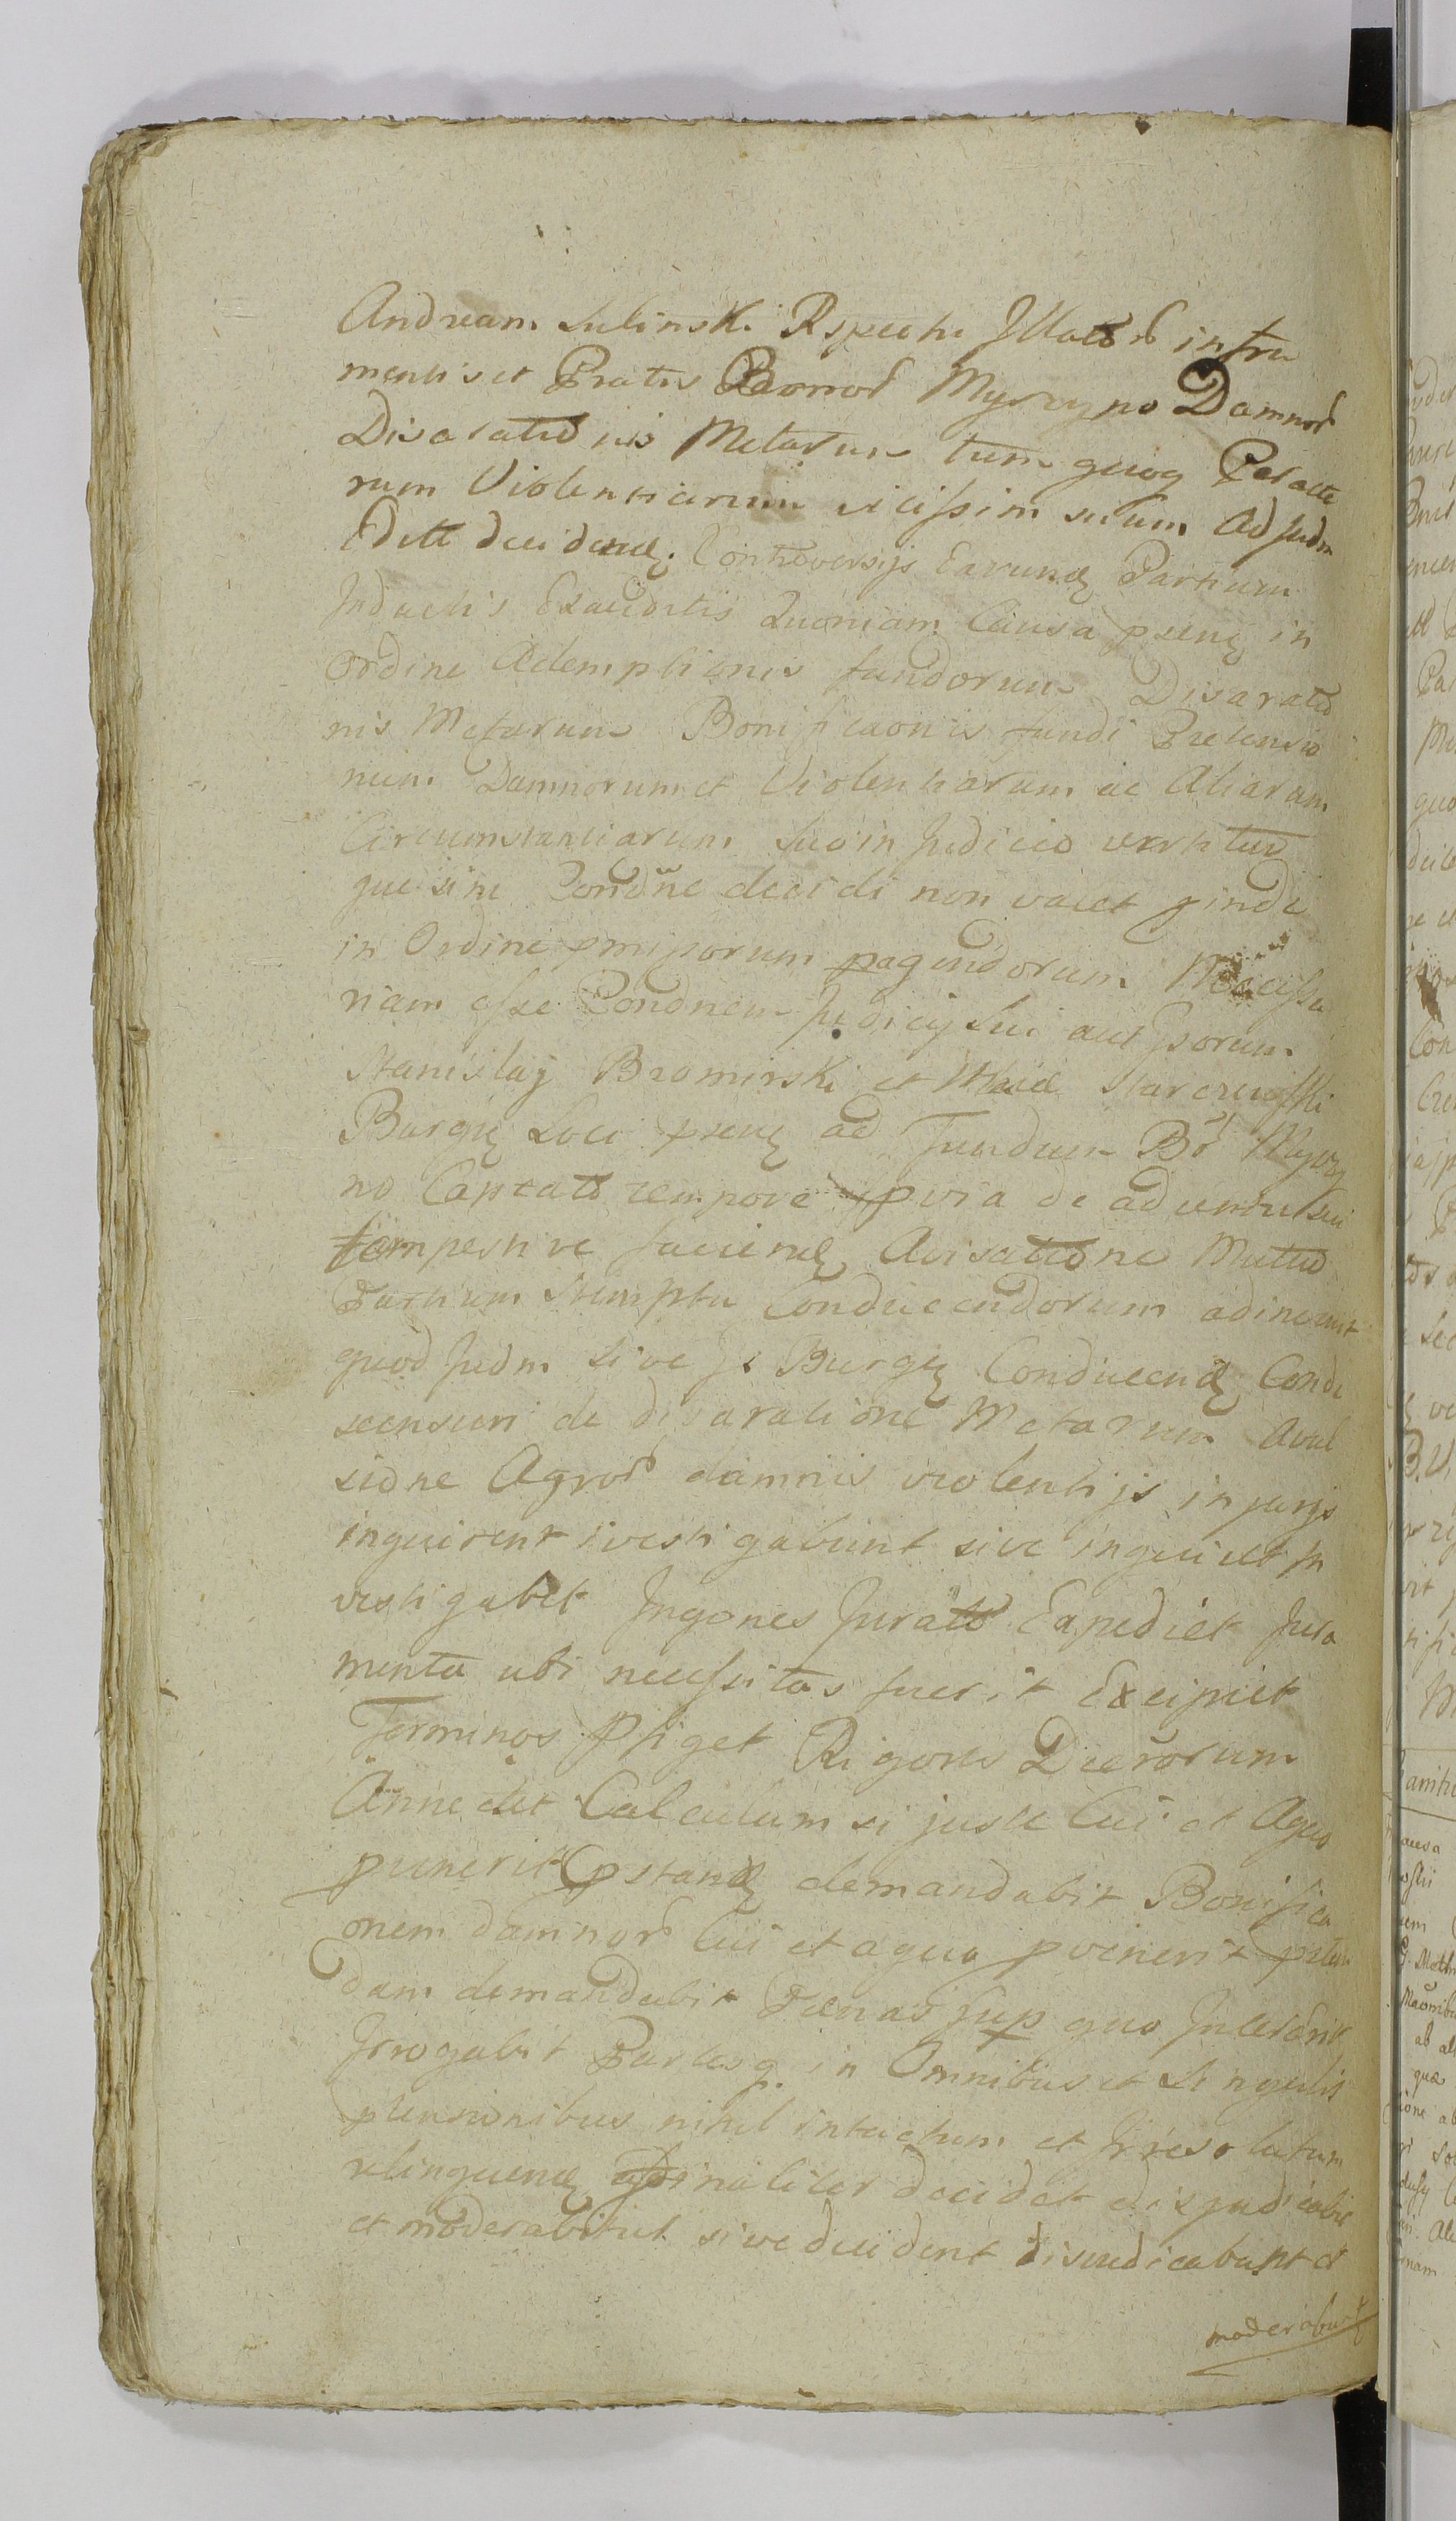 Andream Sulinski Rspectu Illator in fru
mentis et Pratis Bonor Myszyno Damnor
Disaratiõnis Metarum tum quoq Peracta
rum Violentiarum vicissim suum Ad Judm
Edtt decidend. Controversijs Earund Partium
Inductis Exauditis Quoniam Causa psens in
Ordine Ademptionis fundorum Disaratio
nis Metarum Bonificaonis fundi Pretensio
num Damnorum et Violentiarum ac Aliarum
Circumstantiarum Suo in Judicio vertitur
que sine Condne decidi non valet pinde
in Ordine pmissorum pagendorum Necessa
riam esse Condnem Judicij Sui aut Gsorum
Stanislaj Bromirski et Starczewski
Burgs Loci psens ad Fundum Bor Myszy
no Captato tempore pvia de adventu sui
tempestive faciend Avisatione Mutuo
Partium Sumptu Conducendorum adinvenit
quod Judm sive Burgs Conducend Conde
scensum de disaratione Metarum Avul
sione Agror damnis violentijs injurijs
inquirent ivestigabunt sive inquiret In
vestigabit Ingones Juratt Expediet Jura
menta ubi necessitas fuerit Excipiet
Terminos Pfiget Rigores Decrorum
Annectet Calculum si juste Cui et Aquo
pvenerit pstand demandabit Bonifica
onem damnor Cui et aquo pvenerit pstan
dam demandabit Pænas sup quo Inciderit
Irrogabit Partesq in Omnibus et Singulis
ptensionibus nihil intactum et Irresolutum
relinquend finaliter decidet disjudicabit
et moderabitur sive decident disiudicabunt et
moderabunt